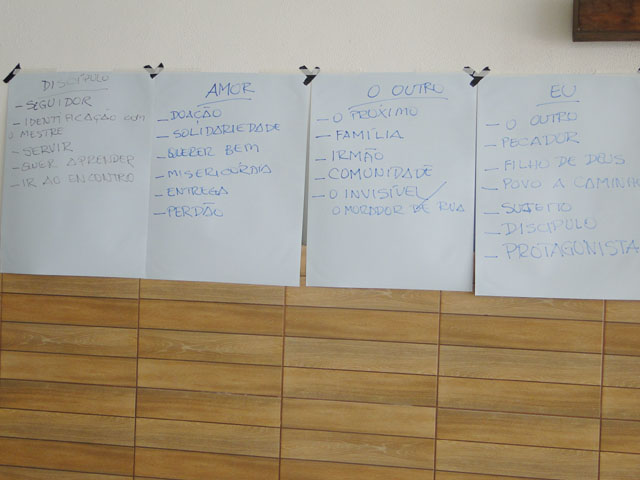 DISCÍPULO
- SEGUIDOR
- IDENTIFICAÇÃO com
O MESTRE
- SERVIR
- QUER APRENDER
- IR AO ENCONTRO
AMOR
- DOAÇÃO
- SOLIDARIEDADE
- QUERER BEM
- MISERICÓRDIA
- ENTREGA
- PERDÃO
O OUTRO
- O PRÓXIMO
- FAMÍLIA
- IRMÃO
- COMUNIDADE
- O INVISÍVEL
O MORADOR DE RUA
EU
- O OUTRO
- PECADOR
- FILHO DE DEUS
- POVO A CAMINHO
- SUJEITO
- DISCÍPULO
- PROTAGONISTA